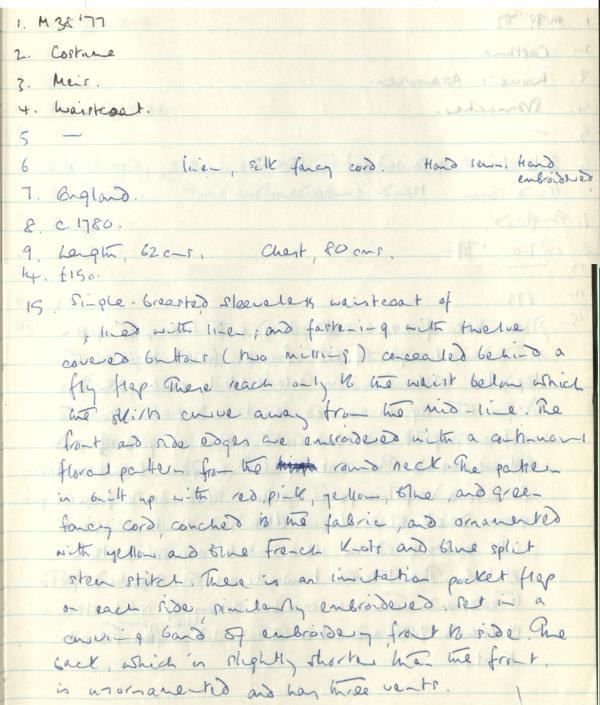 1. M 38 '77
2. Costume
3. Men's.
4. Waistcoat.
5 —
6 linen, silk fancy cord. Hand sewn Hand
embroidered
7. England.
8. c. 1780.
9. Length, 62 cms. Chest, 80 cms.
14. £150.
15. Single-breasted, sleeveless waistcoat of
, lined with linen, and fastening with twelve
covered buttons (two missing) concealed behind a
fly flap. These reach only to the waist below which
the skirts curve away from the mid-line. The
front and side edges are embroidered with a continuous
floral pattern from the round neck. The pattern
is built up with red, pink, yellow, blue, and green
fancy cord, couched to the fabric, and ornamented
with yellow and blue French knots and blue split
stem stitch. There is an imitation pocket flap
on each side, similarly embroidered, set in a
curving band of embroidery front to side. The
back, which is slightly shorter than the front,
is unornamented and has three vents.